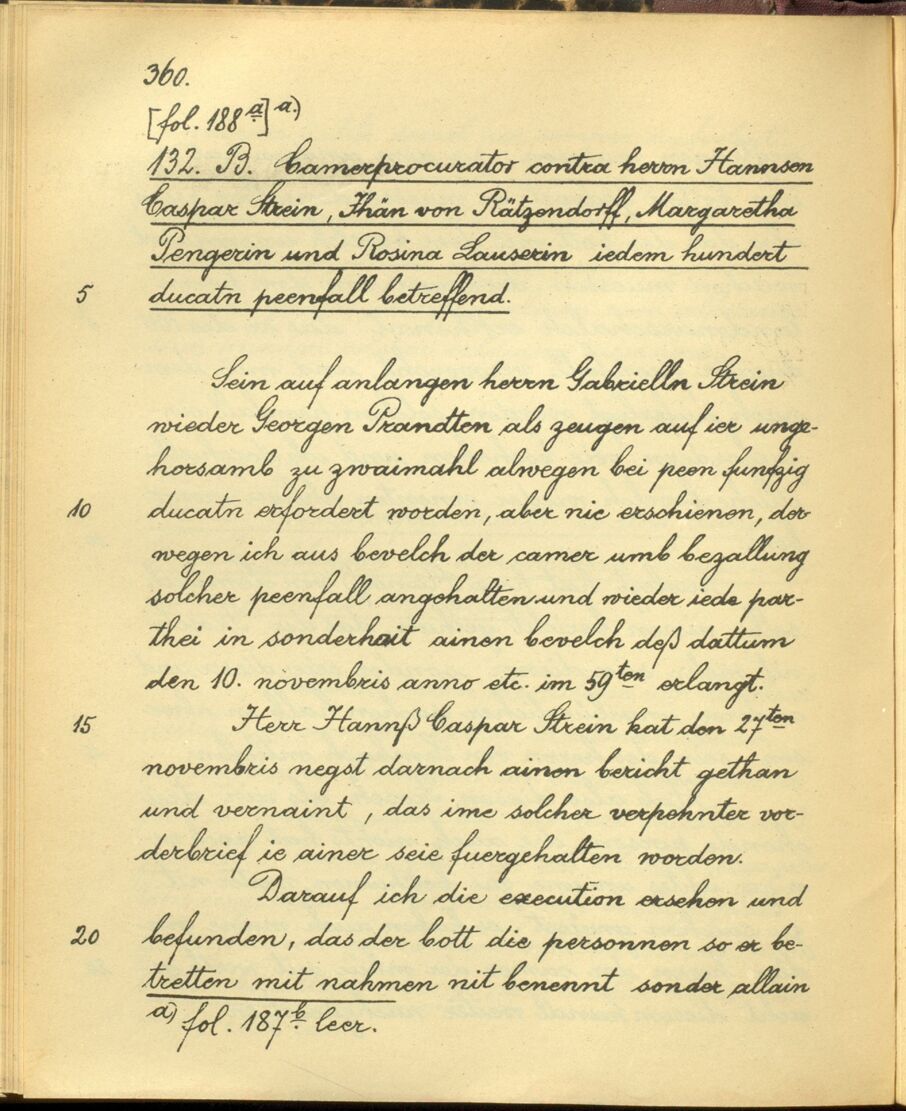 360.
[fol. 188a] a.)
132. B. Camerprocurator contra herrn Hannsen
Caspar Strein, Thän von Rätzendorff, Margaretha
Pengerin und Rosina Lauserin iedem hundert
5 ducatn peenfall betreffend.
Sein auf anlangen herrn Gabrielln Strein
wieder Georgen Prandten als zeugen auf ier unge-
horsamb zu zwaimahl alwegen bei peen funfzig
10 ducatn erfordert worden, aber nie erschienen, der-
wegen ich aus bevelch der camer umb bezallung
solcher peenfall angehalten und wieder iede par-
thei in sonderhait ainen bevelch deß dattum
den 10. novembris anno etc. im 59ten erlangt.
15 Herr Hannß Caspar Strein hat den 27ten
novembris negst darnach ainen bericht gethan
und vernaint, das ime solcher verpehnter vor-
derbrief ie ainer seie fuergehalten worden.
Darauf ich die execution ersehen und
20 befunden, das der bott die personnen so er be-
tretten mit nahmen nit benennt sonder allain
a) fol. 187b leer.